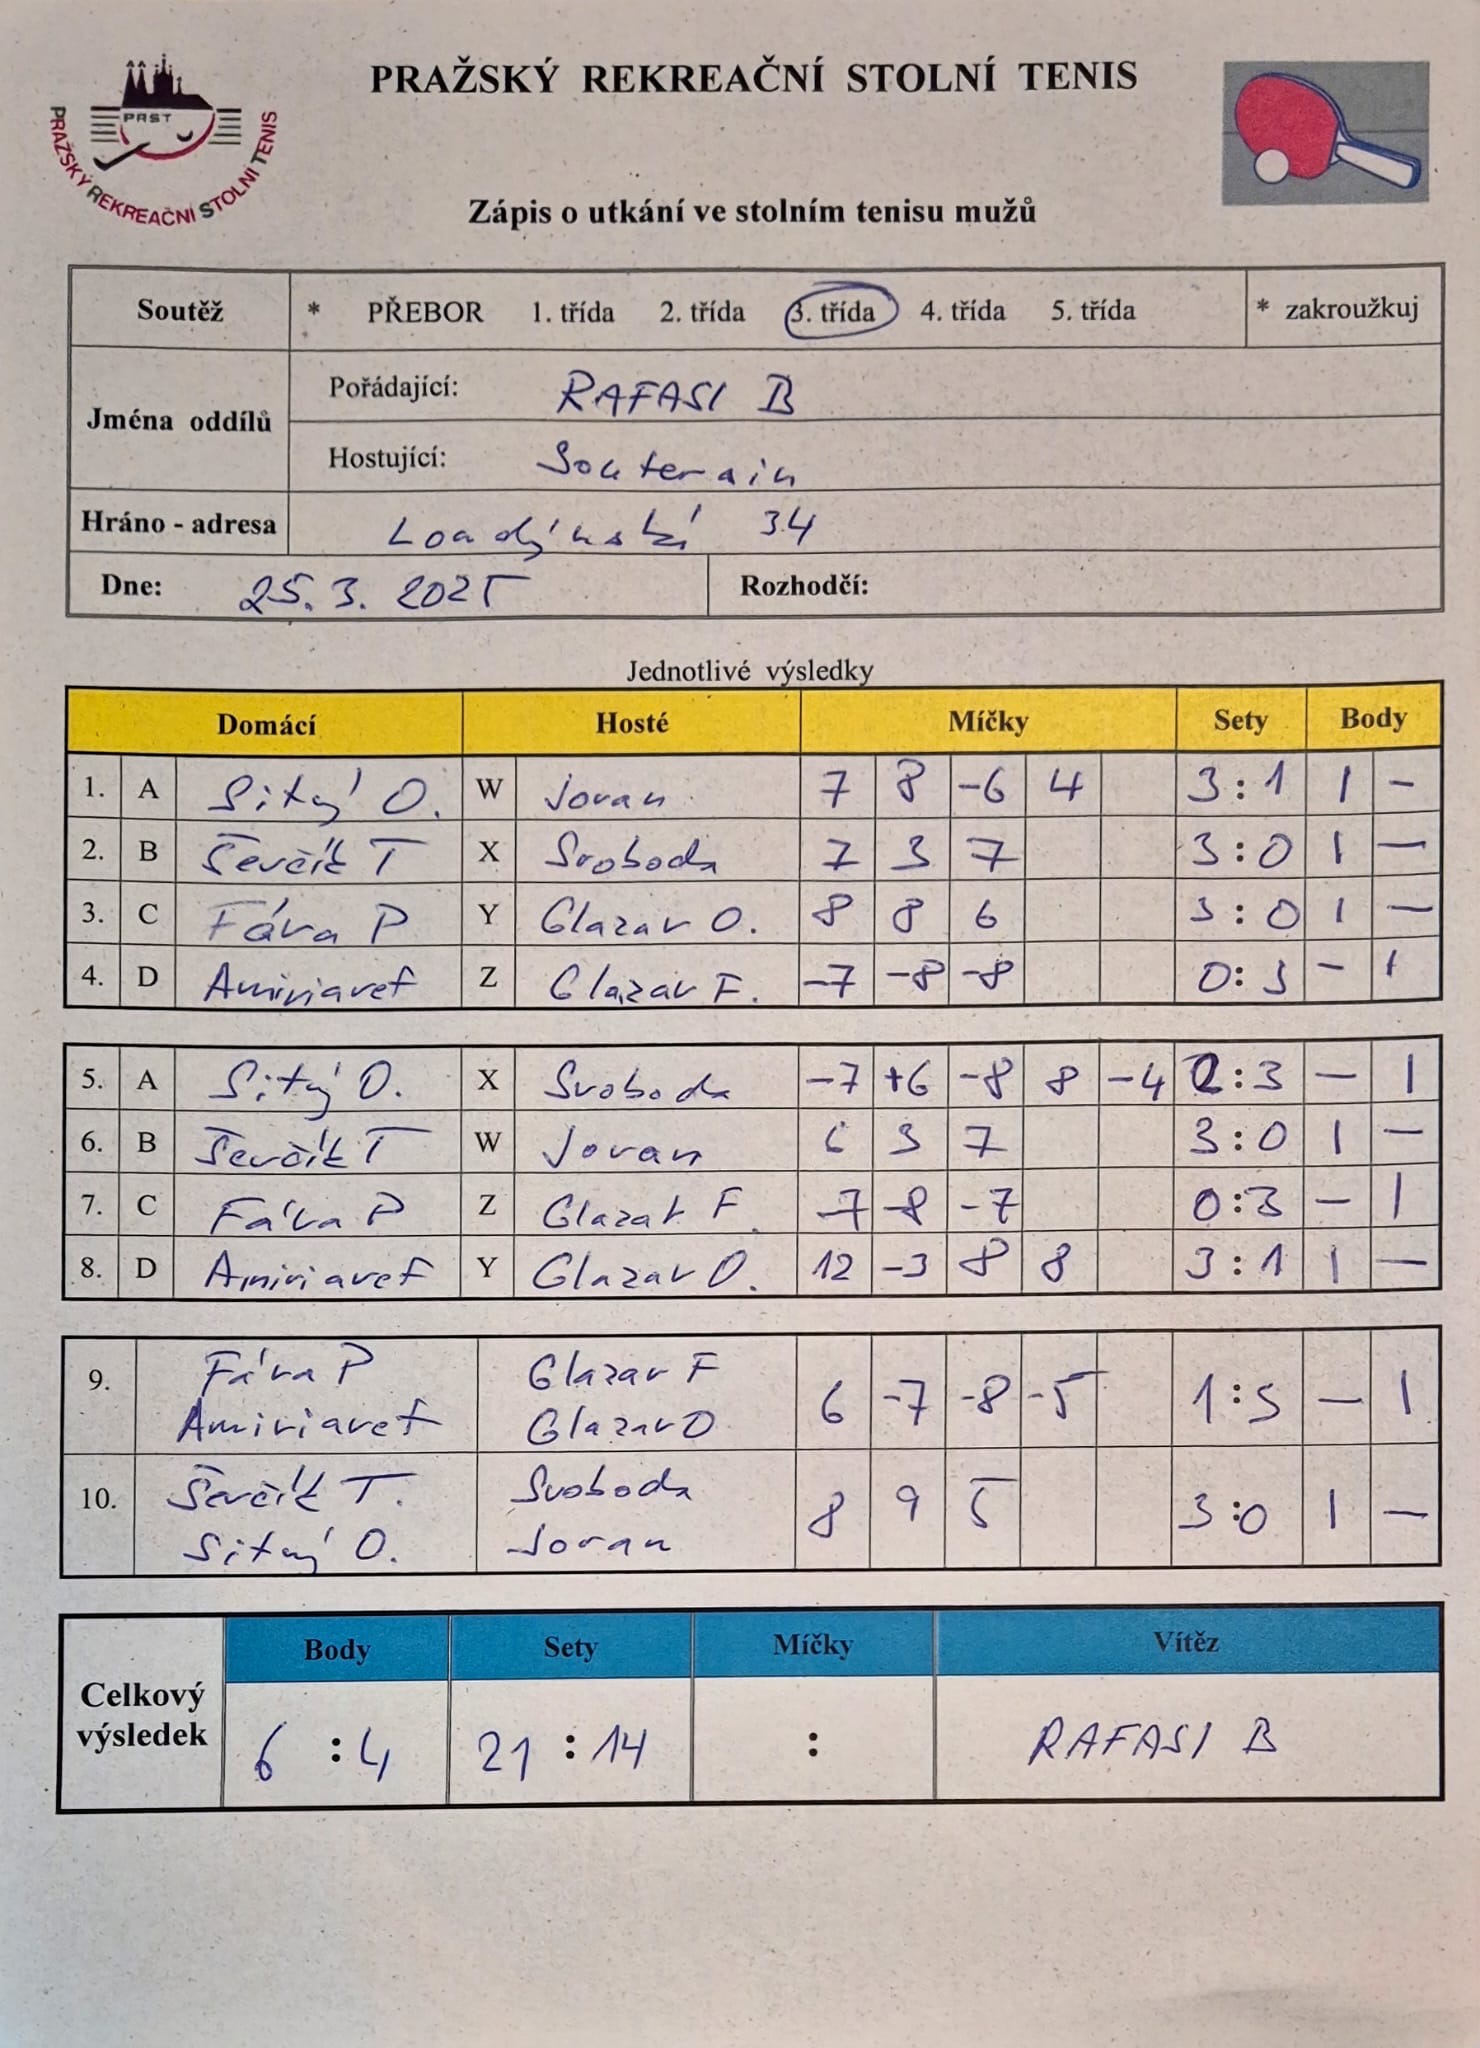 PRAŽSKÝ REKREAČNÍ STOLNÍ TENIS
PRST
PRAŽSKÝ REKREAČNÍ STOLNÍ TENIS
Zápis o utkání ve stolním tenisu mužů
Soutěž * PŘEBOR 1. třída 2. třída 3. třída 4. třída 5. třída * zakroužkuj
Jména oddílů
Pořádající: RAFASI B
Hostující: Souterain
Hráno - adresa 34
Dne: 25. 3. 2025 Rozhodčí:
Jednotlivé výsledky
Domácí Hosté Míčky Sety Body
1. A Sitný O. W Jovan 7 8 -6 4 3:1 1 -
2. B Ševčík T X Svoboda 7 3 7 3:0 1 -
3. C Fára P Y Glazar O. 8 8 6 3:0 1 -
4. D Z Glazar F. -7 -8 -8 0:3 - 1
5. A Sitný O. X Svoboda -7 +6 -8 8 -4 2:3 - 1
6. B Ševčík T W Jovan 6 3 7 3:0 1 -
7. C Fára P Z Glazar F. -7 -8 -7 0:3 - 1
8. D Y Glazar O. 12 -3 8 8 3:1 1 -
9. Fára P Glazar F 6 -7 -8 -5 1:3 - 1
Glazar O
10. Ševčík T. Svoboda 8 9 5 3:0 1 -
Sitný O. Jovan
Body Sety Míčky Vítěz
Celkový výsledek 6 : 4 21 : 14 : RAFASI B